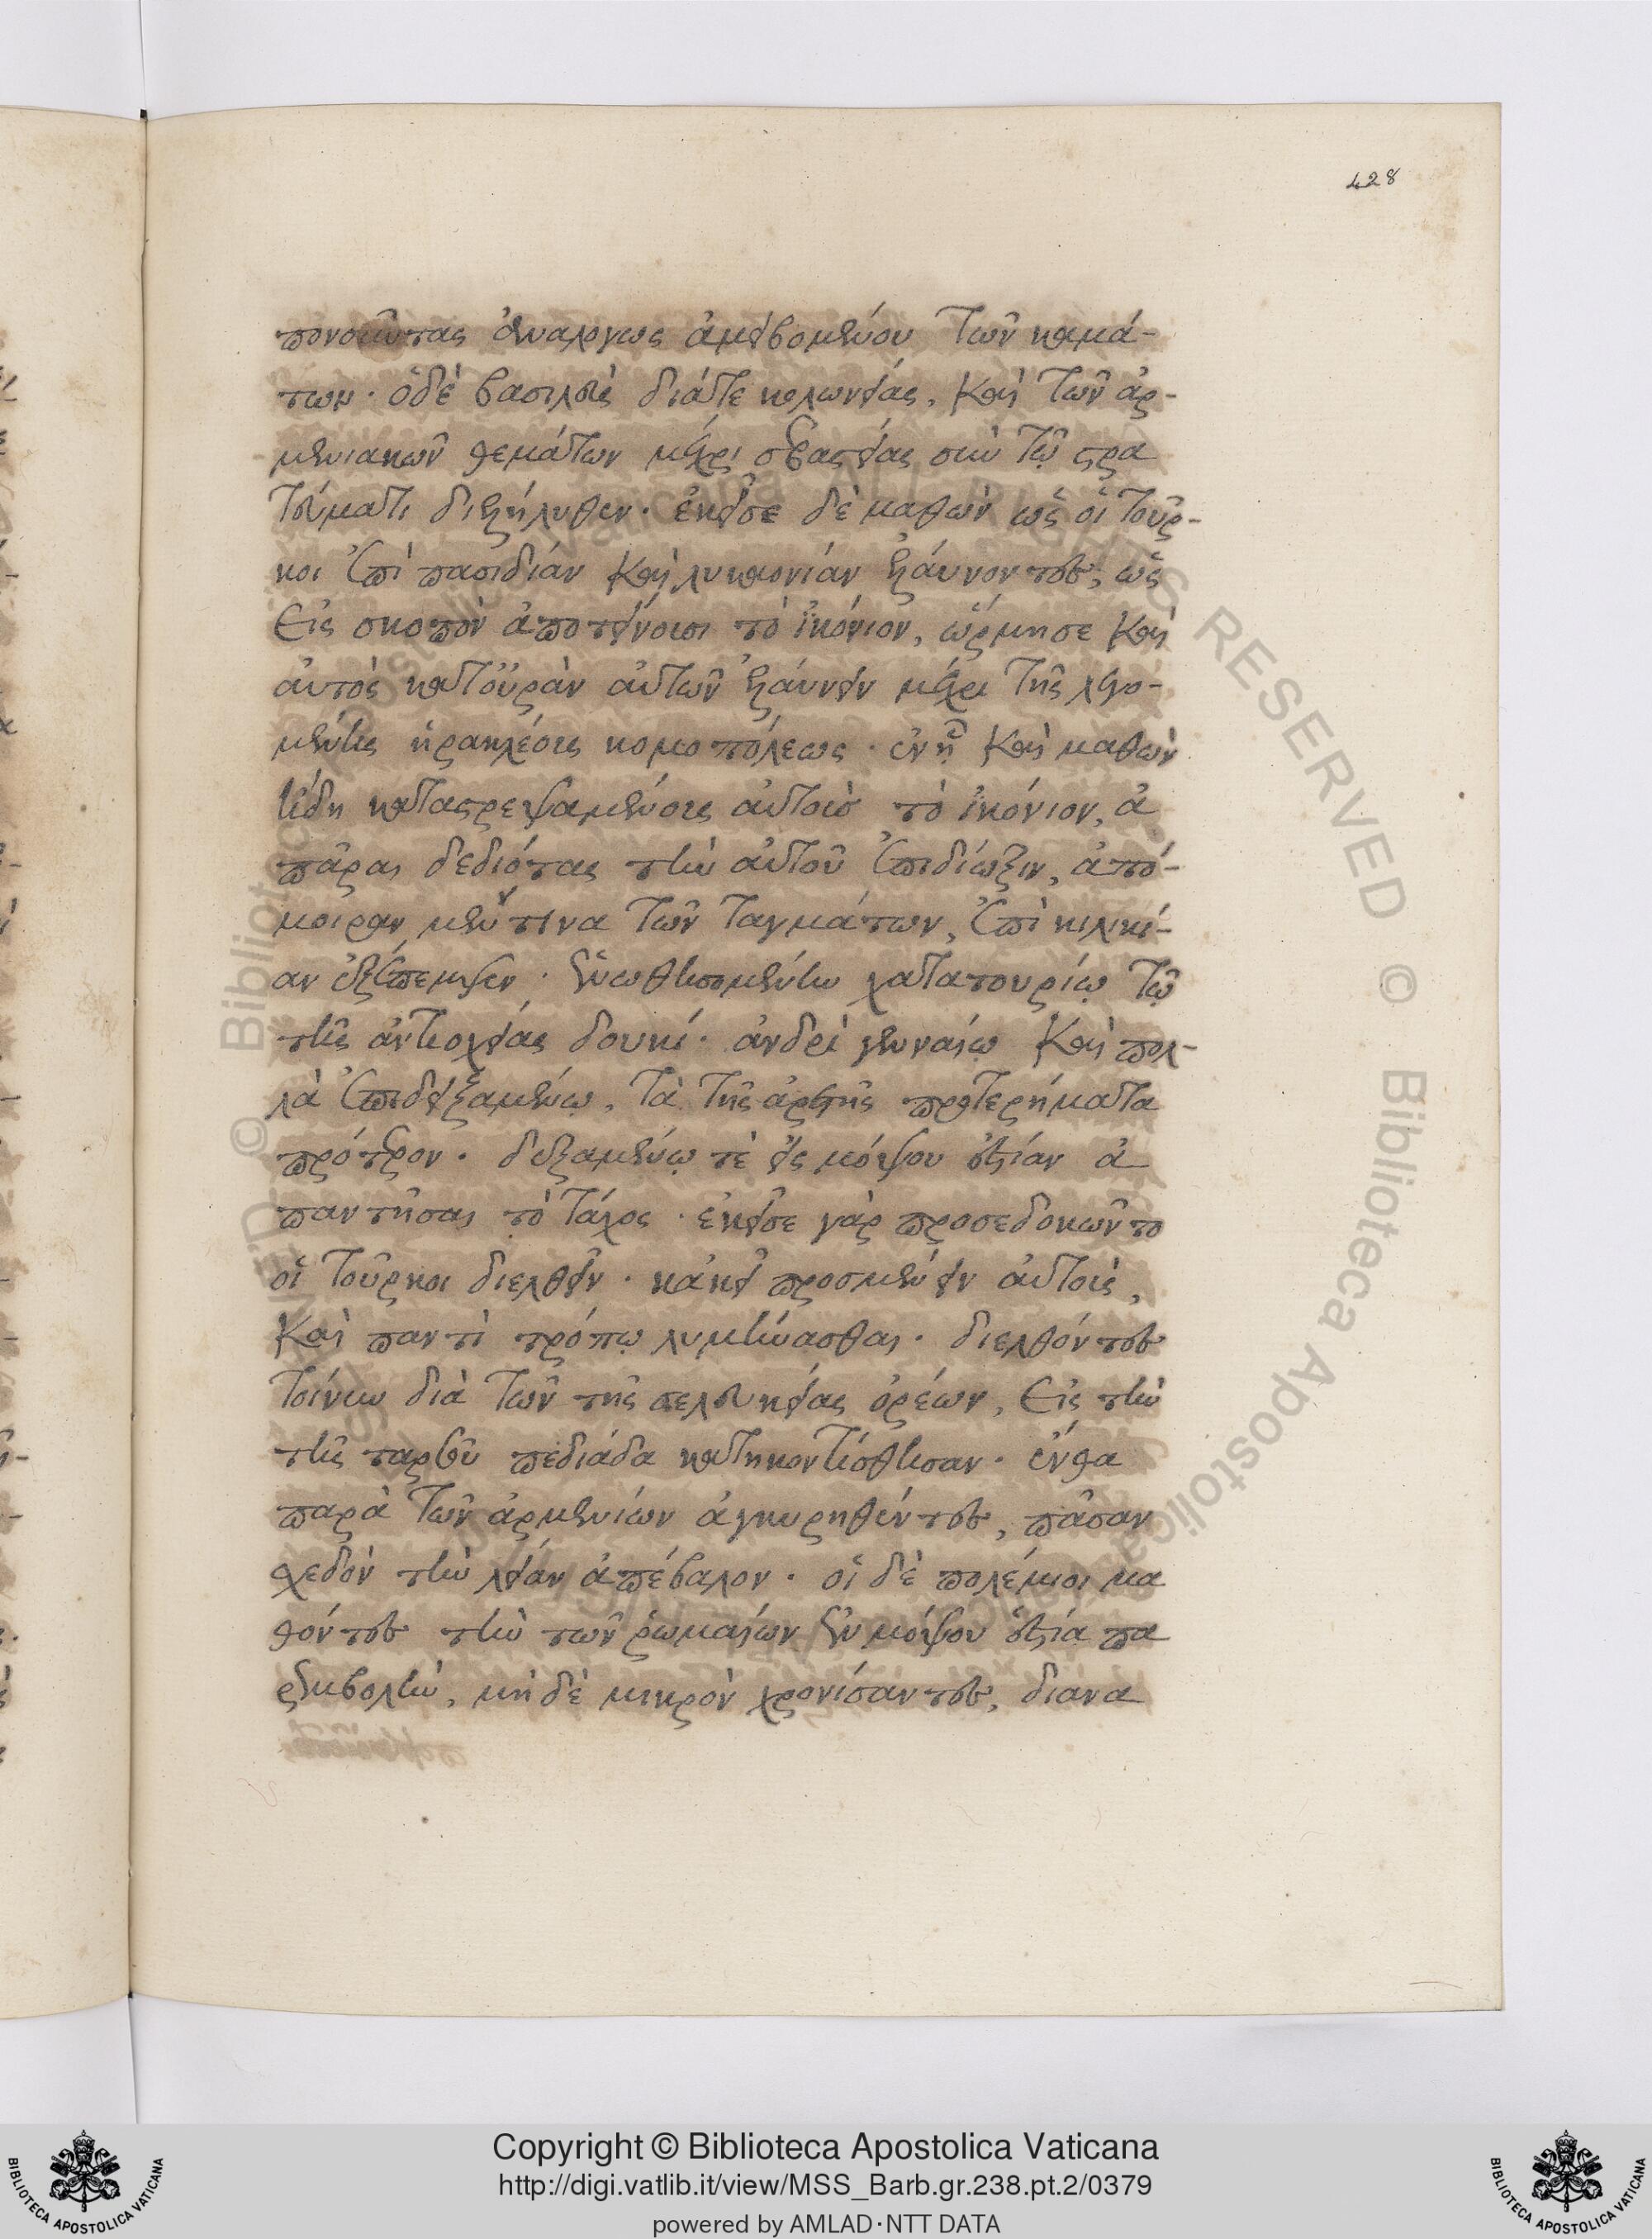 428
πονοῦντας ἀναλογως ἀμειβομένου τῶν καμά-
των. ὁ δὲ βασιλεὺς διάτε κολωνείας, καὶ τῶν ἀρ-
μενιακῶν θεμάτων μέχρι σεβαστείας σὺν τῷ στρα
τεύματι διεξήλυθεν. ἐκεῖσε δὲ μαθὼν ὡς οἱ τοῦρ-
κοι ἐπὶ πασιδιάν καὶ λυκαονιάν ἐξάυνοντες, ὡς
εἰς σκοπὸν ἀποτείνουσι τὸ ἰκόνιον, ὥρμησε καὶ
αὐτὸς κατοὐρὰν αὐτῶν ἐξάυνειν μέχρι τῆς λεγο-
μένης ἡρακλέους κομοπόλεως. ἐν ᾗ καὶ μαθὼν
ἤδη καταστρεψαμένους αὐτοὺς τὸ ἰκόνιον, ἀ
πᾶραι δεδιότας τὴν αὐτοῦ ἐπιδίωξιν, ἀπό-
μοιραν μέν τινα τῶν ταγμάτων, ἐπὶ κιλικί-
αν ἐξέπεμψεν. ἑνωθησομένην χατατουρίῳ τῷ
τῆς ἀντιοχείας δουκί. ἀνδρὶ γενναίῳ καὶ πολ-
λὰ ἐπιδειξαμένῳ, τὰ τῆς ἀρετῆς προτερήματα
πρότερον. δεξαμένῳ τὲ εἰς μόψου ἑστίαν ἀ
παντῆσαι τὸ τάχος. ἐκεῖσε γὰρ προσεδοκῶντο
οἱ τοῦρκοι διελθεῖν. κἀκεῖ προσμένειν αὐτοὺς,
καὶ παντὶ τρόπῳ λυμήνασθαι. διελθόντες
τοίνυν διὰ τῶν τῆς σελευκείας ὀρέων, εἰς τὴν
τῆς ταρσοῦ πεδιάδα κατηκοντίσθησαν. ἔνθα
παρὰ τῶν ἀρμενίων ἀγκυρηθέντες, πᾶσαν
σχεδὸν τὴν λείαν ἀπέβαλον. οἱ δὲ πολέμιοι μα
θόντες τὴν τῶν ῥωμαίων ἐν μόψου ἑστία πα
ρεμβολὴν, μὴ δὲ μικρὸν χρονίσαντες, διανα
Copyright © Biblioteca Apostolica Vaticana
http://digi.vatlib.it/view/MSS_Barb.gr.238.pt.2/0379
powered by AMLAD·NTT DATA